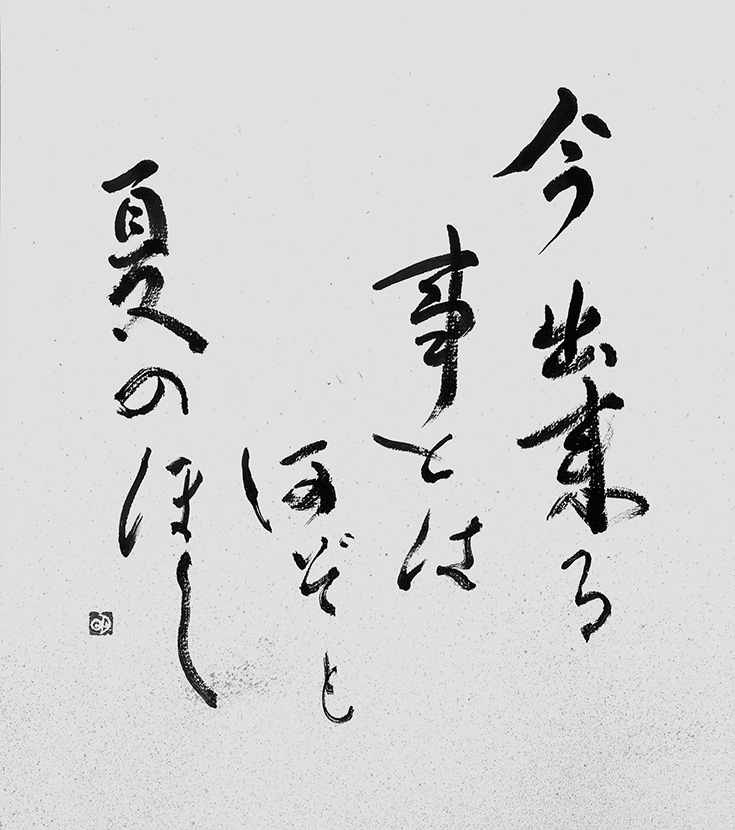 今出来る
事とは
何ぞと
夏のほし